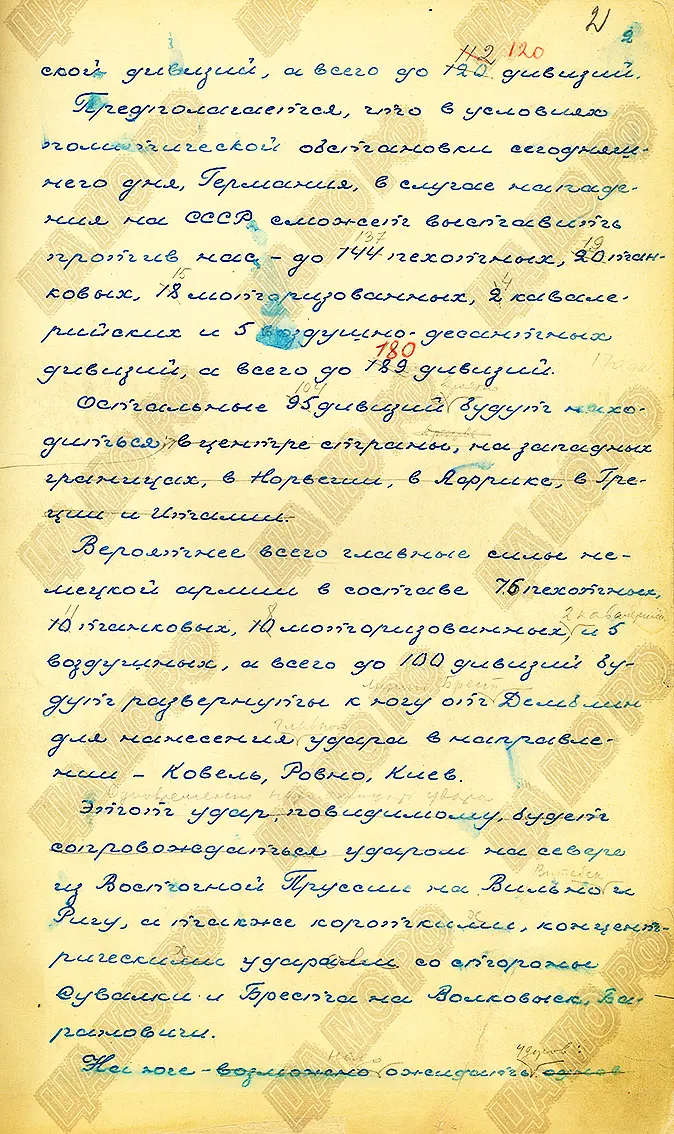 2
2
112 120
ской дивизий, а всего до 120 дивизий.
Предполагается, что в условиях
политической обстановки сегодняш-
него дня, Германия, в случае нападе-
ния на СССР, сможет выставить
137 19
против нас – до 144 пехотных, 20 тан-
15 4
ковых, 18 моторизованных, 2 кавале-
рийских и 5 воздушно-десантных
180
дивизий, а всего до 189 дивизий.
104
Остальные 95 дивизий будут нахо-
диться, в центре страны, на западных
границах, в Норвегии, в Африке, в Гре-
ции и Италии.
Вероятнее всего главные силы не-
мецкой армии в составе 76 пехотных,
11 8 2 кавалерийск
10 танковых, 10 моторизованных, и 5
воздушных, а всего до 100 дивизий бу-
Брест
дут развернуты к югу от Демблин
главного
для нанесения удара в направле-
нии – Ковель, Ровно, Киев.
Одновременно удара
Этот удар, повидимому, будет
сопровождаться ударом на севере
Витебск
из Восточной Пруссии на Вильно и
Ригу, а также короткими, концент-
рическими ударами со стороны
Сувалки и Бреста на Волковыск, Ба-
рановичи.
надо ударов:
На юге – возможно ожидать